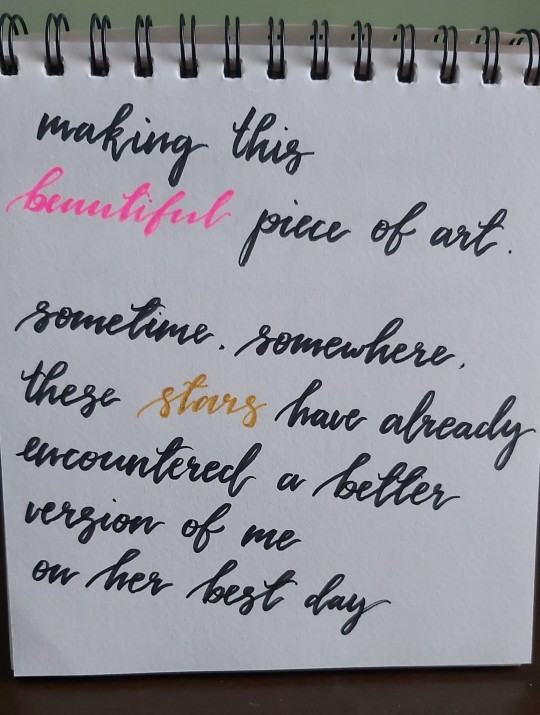 making this
beautiful piece of art.
sometime. somewhere.
these stars have already
encountered a better
version of me
on her best day